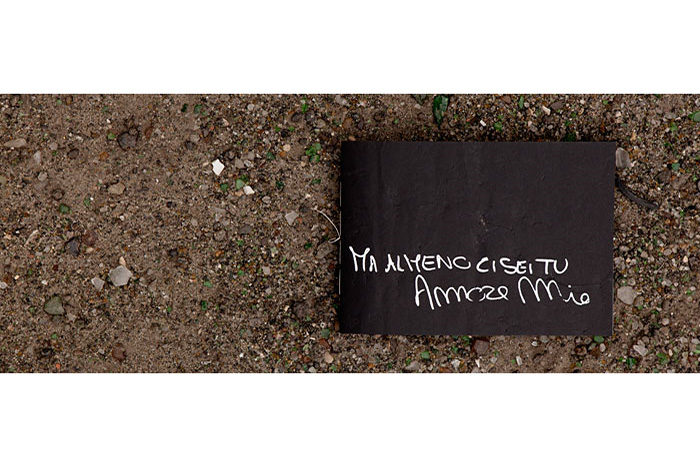 MA ALMENO CI SEI TU
Amore Mio